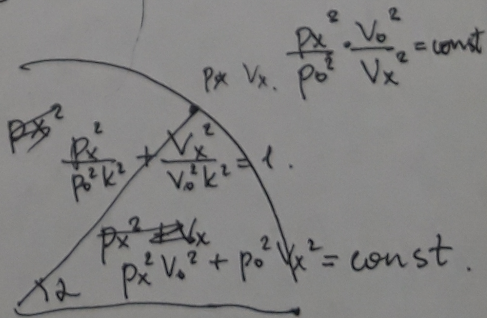 px Vx. px²/p₀² · V₀²/Vx² = const
px²
px²/p₀²k² + Vx²/V₀²k² = 1.
px² + Vx
px²V₀² + p₀²Vx² = const.
α